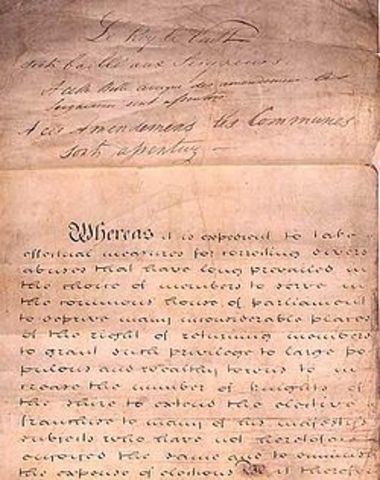 Le Roy le Veult
Soit baillé aux Seigneurs
A cette Bille avecque des amendemens les
Seigneurs sont assentus
A ces Amendemens les Communes
sont assentuz
Whereas it is expedient to take
effectual measures for correcting divers
abuses that have long prevailed in
the choice of members to serve in
the commons house of parliament
to deprive many inconsiderable places
of the right of returning members
to grant such privilege to large po
pulous and wealthy towns to in
crease the number of knights of
the shire to extend the elective
franchise to many of his majesty's
subjects who have not heretofore
enjoyed the same and to diminish
the expense of elections Be it therefore